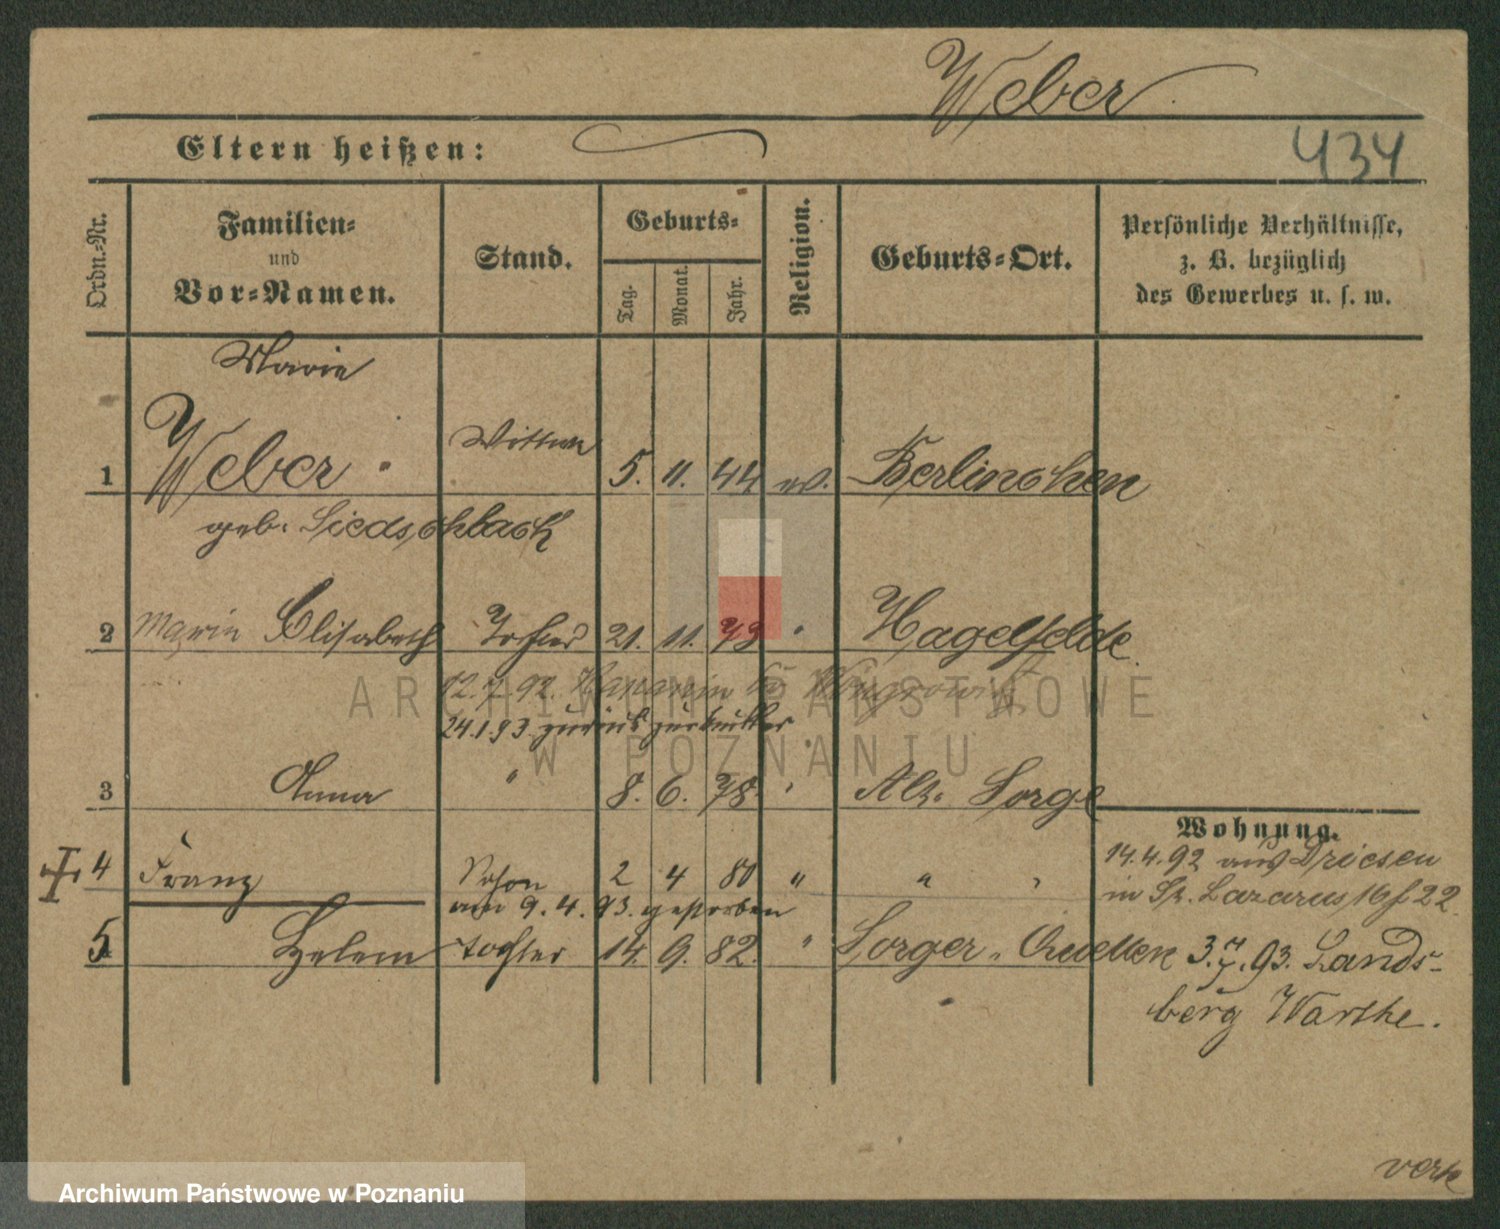 Weber
Eltern heißen:
434
Ordn.-Nr.
Familien- und Vor-Namen.
Stand.
Geburts-
Tag.
Monat.
Jahr.
Religion.
Geburts-Ort.
Persönliche Verhältnisse, z. B. bezüglich des Gewerbes u. s. w.
Marie
1 Weber Wittwe 5. 11. 44 ev. Berlinchen
geb. Liedschback
2 Marie Elisabeth Tochter 21. 11. 73 " Hagelfelde
12.7.92.
24.1.93. zurück zur Mutter
3 Anna " 8. 6. 78. " Alt. Sorge
Wohnung.
14.4.92 aus Driesen
in St. Lazarus 16 f 22.
4 Franz Sohn 2 4 80 " " "
am 9.4.93. gestorben
5 Helene Tochter 14. 9. 82. " Sorger-
3.7.93. Lands-
berg Warthe.
verh
ARCHIWUM PAŃSTWOWE
W POZNANIU
Archiwum Państwowe w Poznaniu